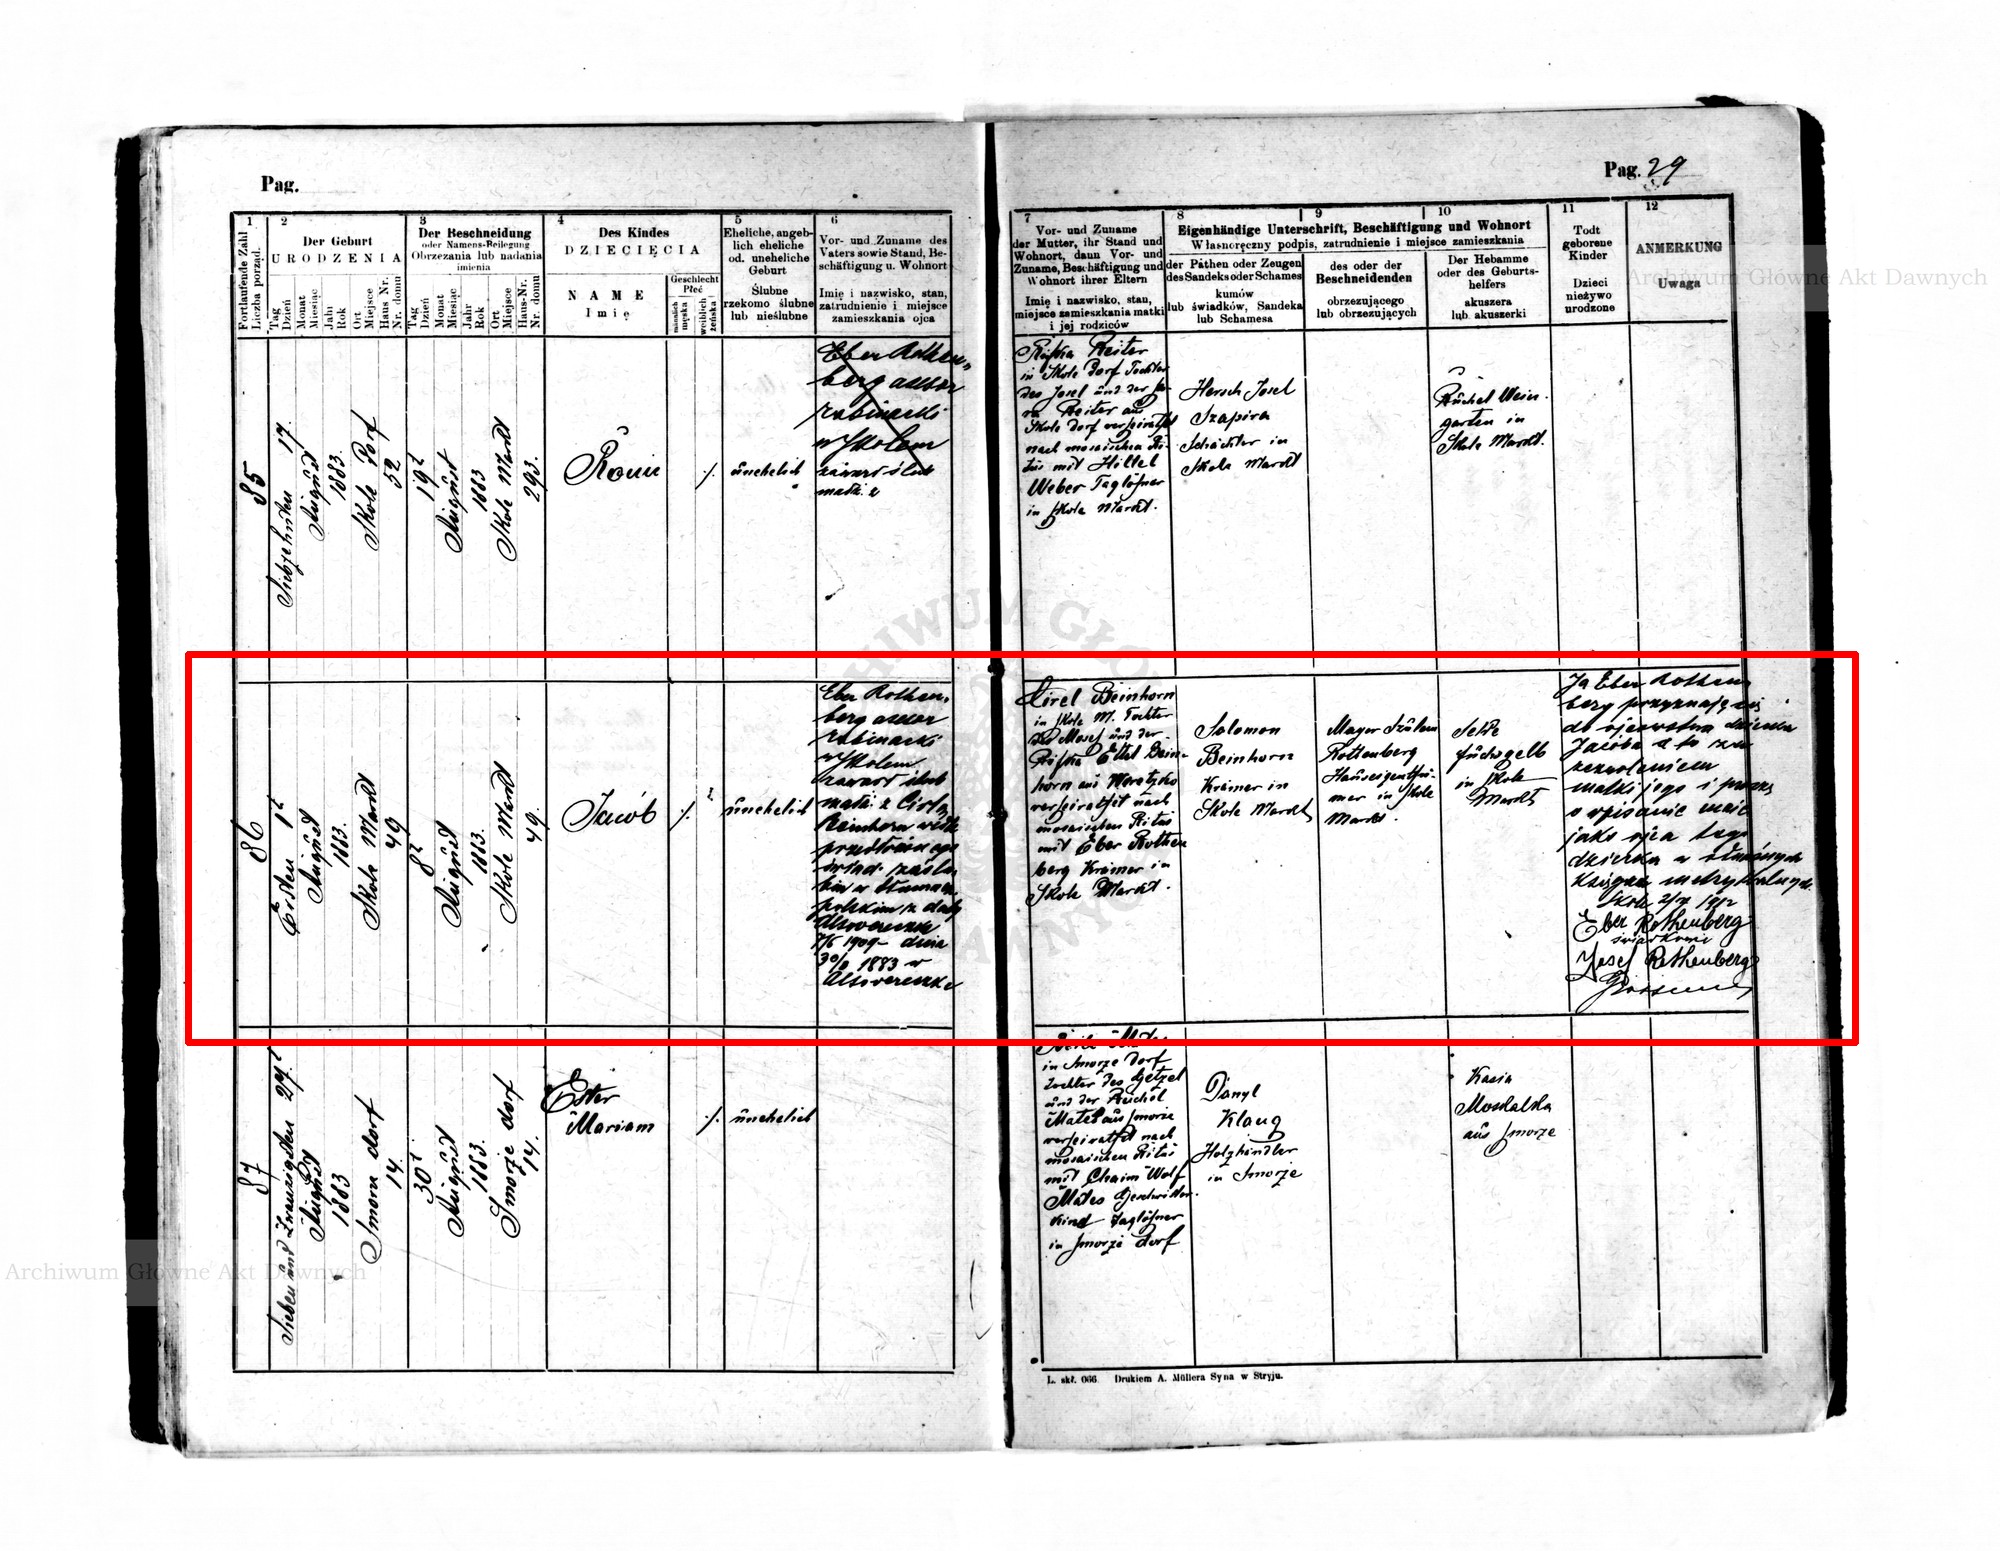 Pag.
Pag. 29
1
Fortlaufende Zahl
Liczba porząd.
2
Der Geburt
URODZENIA
Tag
Dzień
Monat
Miesiąc
Jahr
Rok
Ort
Miejsce
Haus Nr.
Nr. domu
3
Der Beschneidung
oder Namens-Beilegung
Obrzezania lub nadania
imienia
Tag
Dzień
Monat
Miesiąc
Jahr
Rok
Ort
Miejsce
Haus-Nr.
Nr. domu
4
Des Kindes
DZIECIĘCIA
NAME
Imię
Geschlecht
Płeć
männlich
męska
weiblich
żeńska
5
Eheliche, angeb-
lich eheliche
od. uneheliche
Geburt
Ślubne
rzekomo ślubne
lub nieślubne
6
Vor- und Zuname des
Vaters sowie Stand, Be-
schäftigung u. Wohnort
Imię i nazwisko, stan,
zatrudnienie i miejsce
zamieszkania ojca
7
Vor- und Zuname
der Mutter, ihr Stand und
Wohnort, dann Vor- und
Zuname, Beschäftigung und
Wohnort ihrer Eltern
Imię i nazwisko, stan,
miejsce zamieszkania matki
i jej rodziców
8
9
10
Eigenhändige Unterschrift, Beschäftigung und Wohnort
Własnoręczny podpis, zatrudnienie i miejsce zamieszkania
der Pathen oder Zeugen
des Sandeks oder Schames
kumów
lub świadków, Sandeka
lub Schamesa
des oder der
Beschneidenden
obrzezującego
lub obrzezujących
Der Hebamme
oder des Geburts-
helfers
akuszera
lub akuszerki
11
Todt
geborene
Kinder
Dzieci
nieżywo
urodzone
12
ANMERKUNG
Uwaga
85
Siebzehnten 17.
August
1883.
Skole Dorf
52
19t
August
1883
Skole Markt
293.
Rosie
unehelich
Eber Rothen-
berg asesor
rabinacki
w Skolem
zawarł ślub
małż. z
Rifka Reiter
in Skole Dorf Tochter
des Josel und der Sa-
ra Reiter aus
Skole Dorf verheirathet
nach mosaischen Ri-
tus mit Hillel
Weber Taglöhner
in Skole Markt.
Hersch Josel
Szapira
Schächter in
Skole Markt
Ruchel Wein-
garten in
Skole Markt.
86
Ersten 1t
August
1883.
Skole Markt
49
8t
August
1883.
Skole Markt
49.
Jacób
unehelich
Eber Rothen-
berg asesor
rabinacki
w Skolem
zawarł ślub
małż. z Cirlą
Beinhorn wedle
przedłożonego
świad. zaślu
bin w tłumacz.
polskim z daty
Alsovereczke
7/6 1909 dnia
30/ 1883 w
Alsovereczke
Cirel Beinhorn
in Skole M. Tochter
des Moses und der
Rifka Ettel Bein-
horn aus
verheirathet nach
mosaischen Ritus
mit Eber Rothen
berg Krämer in
Skole Markt.
Salomon
Beinhorn
Krämer in
Skole Markt
Mayer Szulem
Rottenberg
Hauseigenthü-
mer in Skole
Markt.
Fuchsgelb
in Skole
Markt
Ja Eber Rothen
berg przyznaję się
do ojcowstwa dziecka
Jacóba a to za
zezwoleniem
matki jego i proszę
o wpisanie mnie
jako ojca tego
dziecka w
księgach metrykalnych.
Skole 1912
Eber Rothenberg
świadkowie
Josef Rothenberg
87
Sieben und Zwanzigsten 27t
August
1883
Smorze dorf
14.
30t
August
1883.
Smorze dorf
14.
Ester
Mariam
unehelich
in Smorze Dorf
Tochter des Getzel
und der Reichel
Mates aus Smorze
verheirathet nach
mosaischen Ritus
mit Chaim Wolf
Mates Geschwister
kind Taglöhner
in Smorze dorf
Danyl
Klaug
Holzhändler
in Smorze
Kasia
Moskalska
aus Smorze
L. skł. 066. Drukiem A. Müllera Syna w Stryju.
Archiwum Główne Akt Dawnych
Archiwum Główne Akt Dawnych